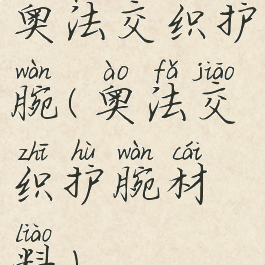 奥法交织护
wàn ào fǎ jiāo
腕(奥法交
zhī hù wàn cái
织护腕材
liào
料)